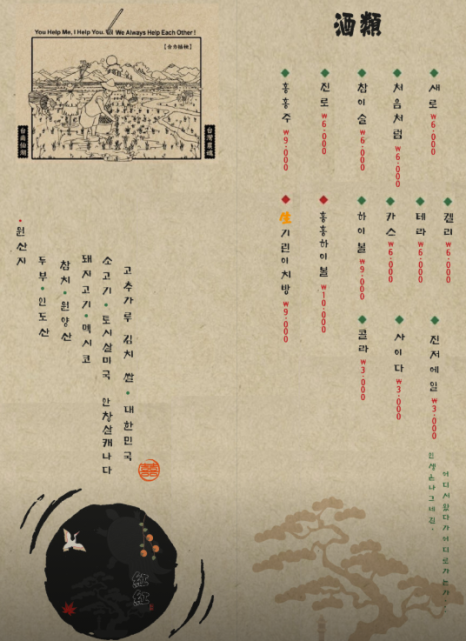 酒類
새로 ₩6·000
처음처럼 ₩6·000
참이슬 ₩6·000
진로 ₩6·000
홍홍주 ₩9·000
켈리 ₩6·000
테라 ₩6·000
카스 ₩6·000
하이볼 ₩9·000
홍홍하이볼 ₩10·000
生기린이치방 ₩9·000
진저에일 ₩3·000
사이다 ₩3·000
콜라 ₩3·000
인생은나그네길.
어디서왔다가어디로가는가.
You Help Me, I Help You. We Always Help Each Other!
원산지
두부·인도산
참치·원양산
돼지고기·멕시코
소고기·토시살미국 안창살캐나다
고추가루 김치 쌀·대한민국
紅紅